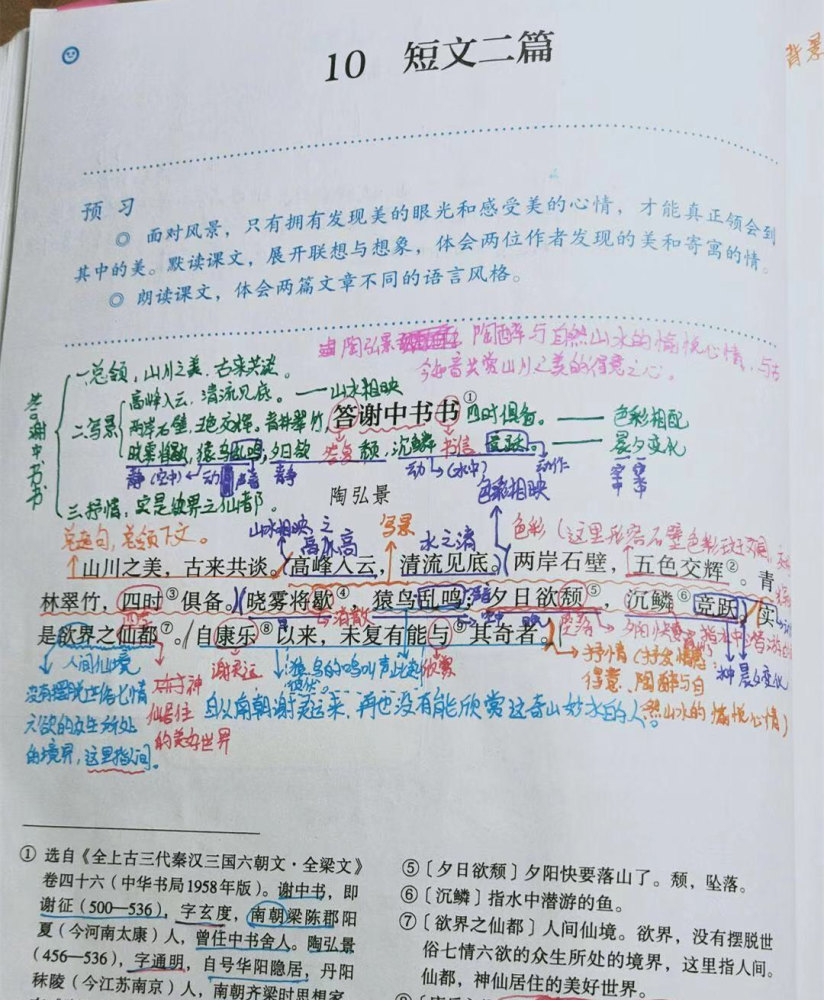 10 短文二篇
背景
预习
◎ 面对风景，只有拥有发现美的眼光和感受美的心情，才能真正领会到
其中的美。默读课文，展开联想与想象，体会两位作者发现的美和寄寓的情。
◎ 朗读课文，体会两篇文章不同的语言风格。
陶弘景 陶醉与自然山水的愉悦心情，与古
今知音共赏山川之美的得意之心。
答谢中书书
一总领，山川之美，古来共谈。
高峰入云，清流见底。——山水相映
二写景 两岸石壁，五色交辉。青林翠竹，
答谢中书书①
四时俱备。——色彩相配
晓雾将歇，猿鸟乱鸣，夕日欲 答复 颓，沉鳞 书信 竞跃。——晨夕变化
静（空中） 动 声音 静 动（水中） 动作
三抒情，实是欲界之仙都。
陶弘景
色彩相映
总起句，总领下文。
山水相映之
高 写景 水之清
山川之美，古来共谈。高峰入云，清流见底。两岸石壁，五色交辉②。青
林翠竹，四时③俱备。晓雾将歇④，猿鸟乱鸣；夕日欲颓⑤，沉鳞⑥竞跃。实
四季 消散 坠落
是欲界之仙都⑦。自康乐⑧以来，未复有能与⑨其奇者。
人间仙境
谢灵运
没有摆脱世俗七情
六欲的众生所处
的境界，这里指人间。
神
仙居住
的美好世界
猿鸟的鸣叫声此起
彼伏。
抒情
得意、陶醉与自
然山水的愉悦心情）
晨夕变化
自从南朝谢灵运来，再也没有能欣赏这奇山妙水的人。
① 选自《全上古三代秦汉三国六朝文·全梁文》
卷四十六（中华书局1958年版）。谢中书，即
谢征（500—536），字玄度，南朝梁陈郡阳
夏（今河南太康）人，曾任中书舍人。陶弘景
（456—536），字通明，自号华阳隐居，丹阳
秣陵（今江苏南京）人，南朝齐梁时思想家
⑤〔夕日欲颓〕夕阳快要落山了。颓，坠落。
⑥〔沉鳞〕指水中潜游的鱼。
⑦〔欲界之仙都〕人间仙境。欲界，没有摆脱世
俗七情六欲的众生所处的境界，这里指人间。
仙都，神仙居住的美好世界。